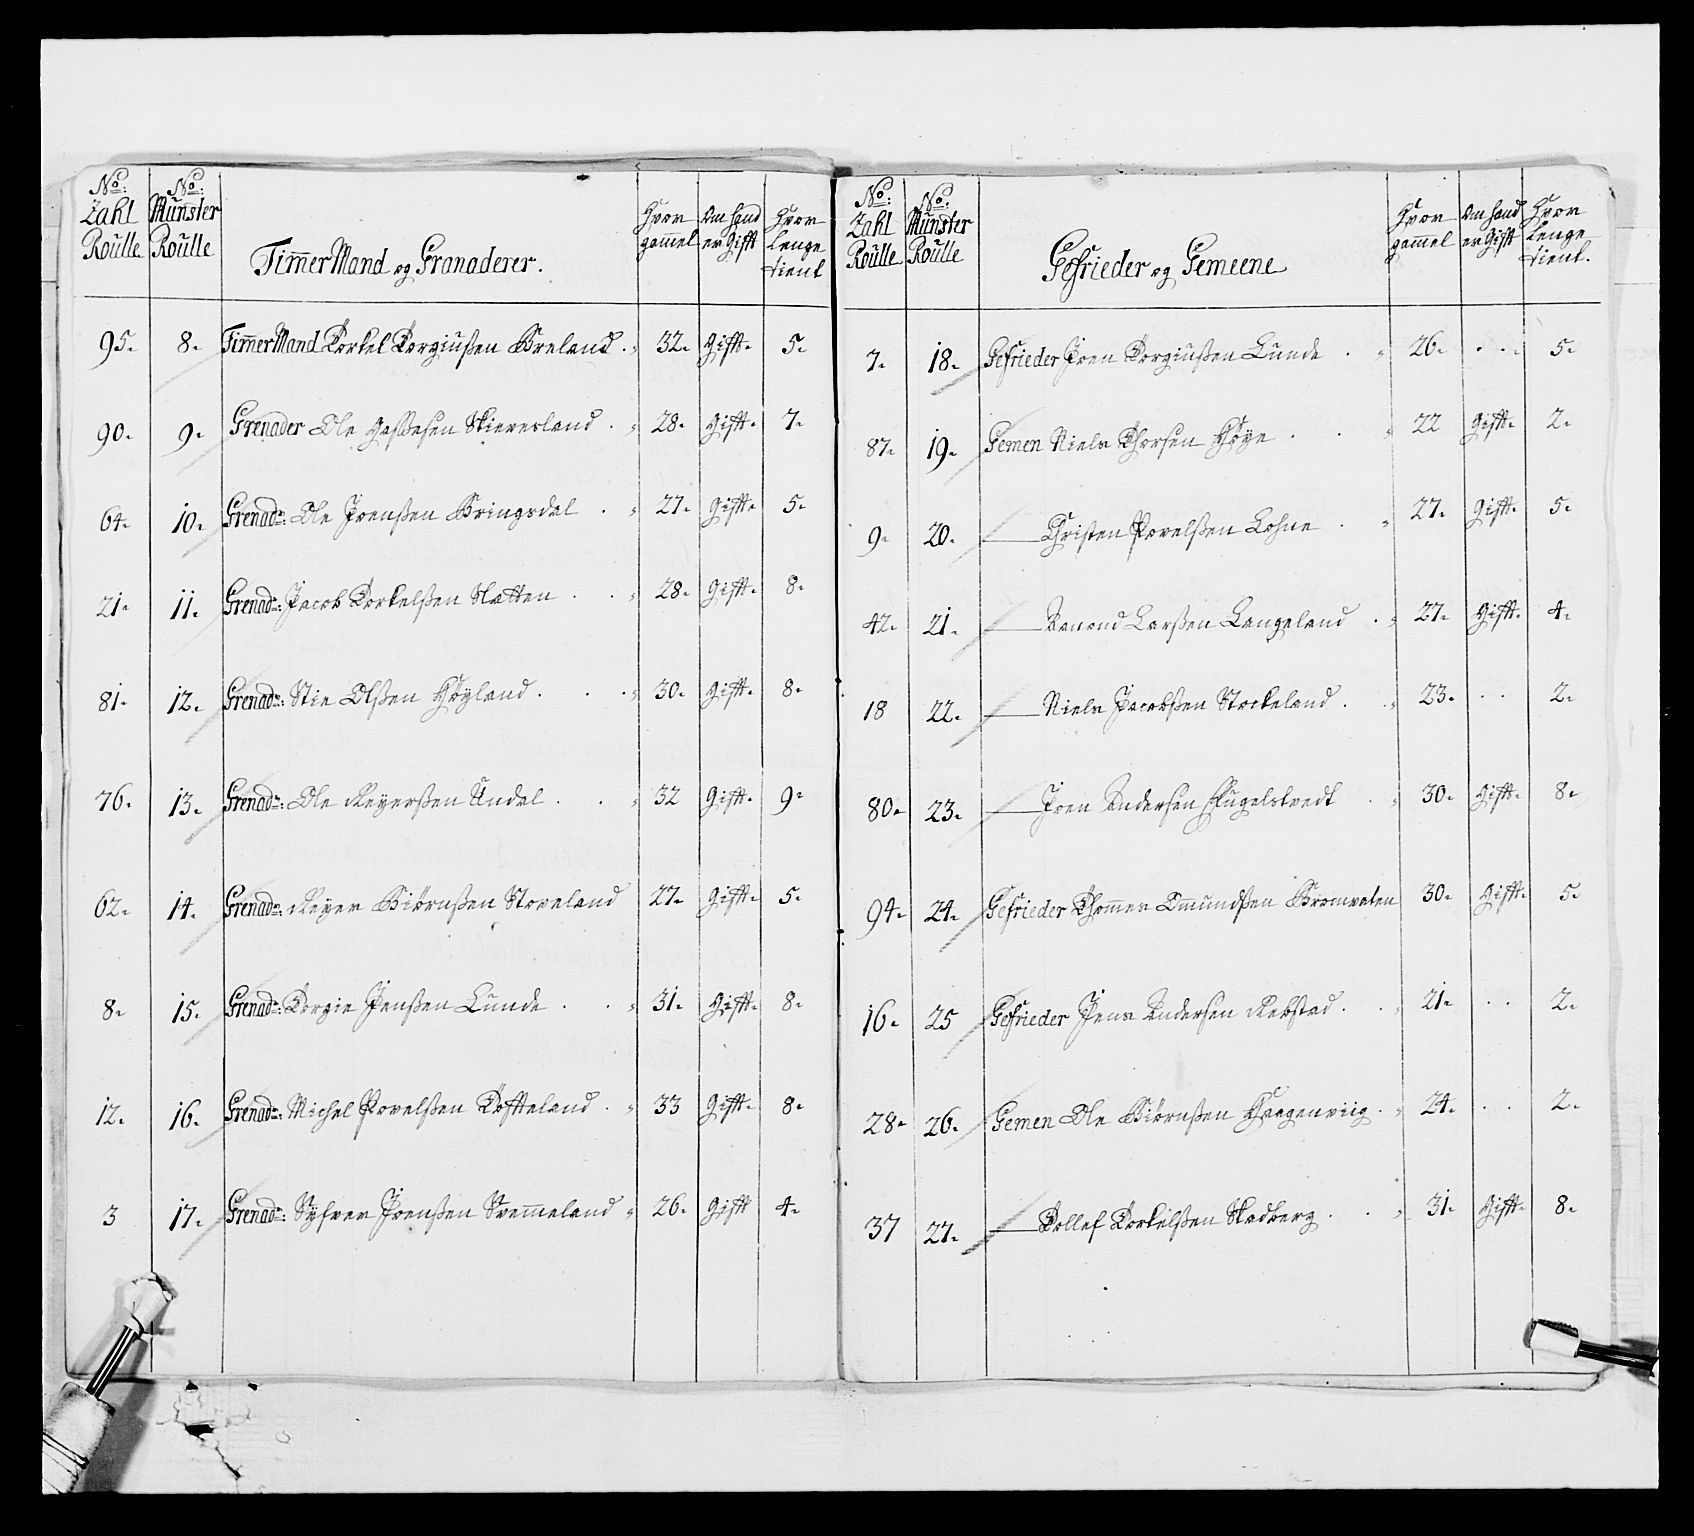 No: Zahl Roulle
No: Munster Roulle
Timmer Mand og Granaderer.
Hvor gammel
Om hand er Gifft
Hvor lenge tient
95. 8. Timmer Mand Torkel Torgiussen Breland 32. Gifft. 5.
90. 9. Grenader Ole Skieveland 28. Gifft. 7.
64. 10. Grenadr: Ole Jrenssen Bringsdal 27. Gifft. 5.
21. 11. Grenadr: Jacob Torkelssen 28. Gifft. 8.
81. 12. Grenadr: Stie Olssen Höyland 30. Gifft. 8.
76. 13. Grenadr: Ole Reyerssen Undal 32 Gifft. 9.
62. 14. Grenadr: Reyer Biörnssen Stoveland 27. Gifft. 5.
8. 15. Grenadr: Torgie Jenssen Lunde 31. Gifft. 8.
12. 16. Grenadr: Michel Povelssen Töffteland 33 Gifft. 8.
3 17. Grenadr: Syfver Jrenssen 26. Gifft 4.
No: Zahl Roulle
No: Munster Roulle
Gefrieder og Gemeene
Hvor gammel
Om hand er Gifft
Hvor lenge tient.
7. 18. Gefrieder Jren Torgiussen Lunde 26. 5.
87. 19. Gemen Niels Thorsen Höye 22 Gifft. 2.
9. 20. Christen Povelssen Lohne 27. Gifft. 5.
42. 21. Larssen Langeland 27. Gifft. 4.
18 22. Niels Jacobssen Stockeland 23. 2.
80. 23. Jren Andersen Fugelstvedt 30. Gifft. 8.
94. 24. Gefrieder Thommes Ommundssen Bromvaten 30. Gifft. 5.
16. 25 Gefrieder Jens Andersen Rebstad 21. 2.
28. 26. Gemen Ole Biörnssen Haagenviig 24. 2.
37 27. Tollef Torkelssen Stadberg 31. Gifft. 8.